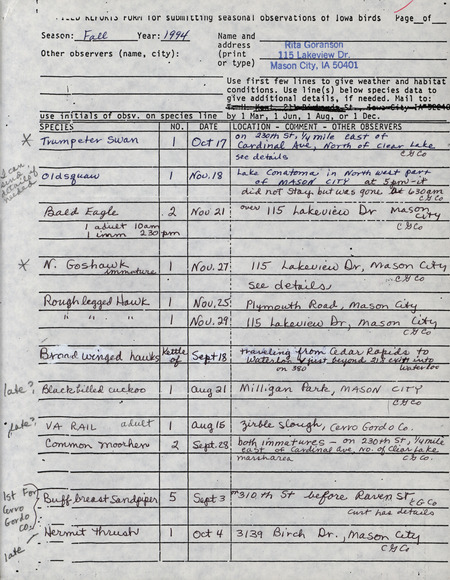 FIELD REPORTS FORM for submitting seasonal observations of Iowa birds Page of
Season: Fall Year: 1994
Name and address (print or type)
Rita Goranson
115 Lakeview Dr.
Mason City, IA 50401
Other observers (name, city):
Use first few lines to give weather and habitat
conditions. Use line(s) below species data to
give additional details, if needed. Mail to:
use initials of obsv. on species line by 1 Mar, 1 Jun, 1 Aug, or 1 Dec.
SPECIES NO. DATE LOCATION - COMMENT - OTHER OBSERVERS
* Trumpeter Swan 1 Oct 17 on 230th St, 1/4 mile east of
Cardinal Ave, North of Clear Lake
see details CG Co
I can
details if
needed
Oldsquaw 1 Nov. 18 Lake Conatoma in North west part
of MASON CITY at 5pm - it
did not stay but was gone at 630am
CG Co
Bald Eagle 2 Nov 21 over 115 Lakeview Dr Mason
City
1 adult 10am
1 imm 230 pm CG Co
* N. Goshawk 1 Nov. 27 115 Lakeview Dr, Mason City
immature CG Co
See details
Rough legged Hawk 1 Nov. 25 Plymouth Road, Mason City
" " " 1 Nov. 29 115 Lakeview Dr, Mason City
CG Co
Broad winged hawks Kettle of Sept 18 traveling from Cedar Rapids to
Waterloo just beyond exit into
on 380 Waterloo
late? Black billed cuckoo 1 Aug 21 Milligan Park, MASON CITY
CG Co
late? VA RAIL adult 1 aug 15 Zirble Slough, Cerro Gordo Co.
Common moorhen 2 Sept. 28 both immatures - on 230th St, 1/4 mile
east of Cardinal Ave, No. of Clear Lake
marsh area CG Co.
1st For
Cerro
Gordo
Co.
Buff breast Sandpiper 5 Sept 3 on 310 th St before Raven St
CG Co
Curt has details
late Hermit thrush 1 Oct 4 3139 Birch Dr., Mason City
CG Co